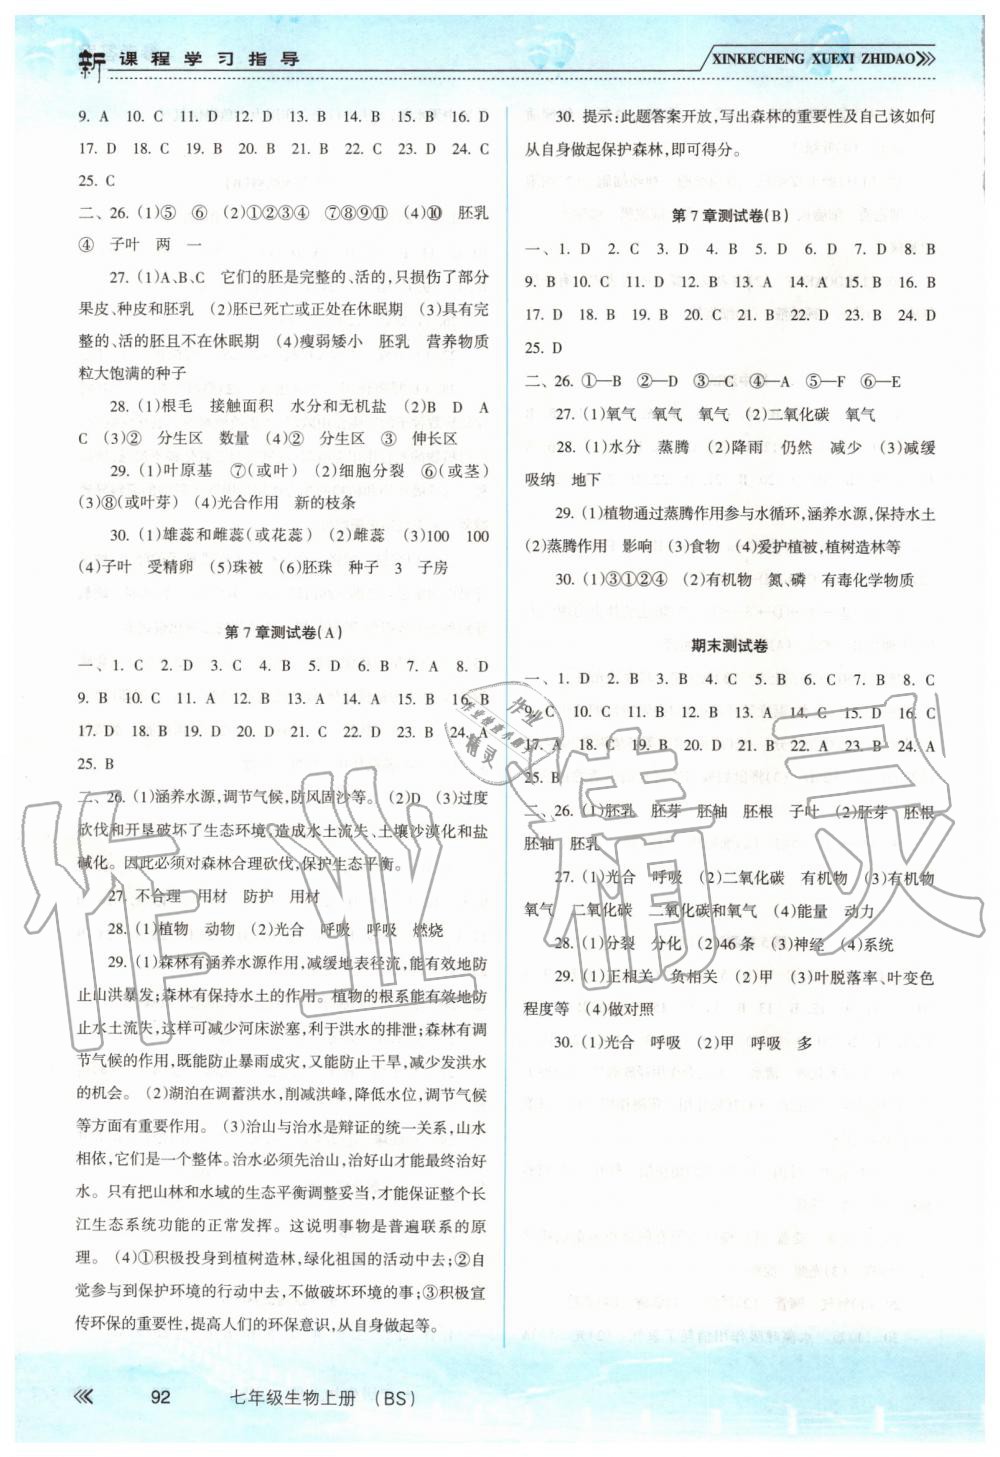 新课程学习指导
XINKECHENG XUEXI ZHIDAO
9. A 10. C 11. D 12. D 13. B 14. B 15. B 16. D
17. D 18. C 19. D 20. B 21. B 22. B 23. D 24. C
25. C
二、26. (1)⑤ ⑥ (2)①②③④ ⑦⑧⑨⑪ (4)⑩ 胚乳
④ 子叶 两 一
27. (1)A、B、C 它们的胚是完整的、活的,只损伤了部分
果皮、种皮和胚乳 (2)胚已死亡或正处在休眠期 (3)具有完
整的、活的胚且不在休眠期 (4)瘦弱矮小 胚乳 营养物质
粒大饱满的种子
28. (1)根毛 接触面积 水分和无机盐 (2)B D A
C (3)② 分生区 数量 (4)② 分生区 ③ 伸长区
29. (1)叶原基 ⑦(或叶) (2)细胞分裂 ⑥(或茎)
(3)⑧(或叶芽) (4)光合作用 新的枝条
30. (1)雄蕊和雌蕊(或花蕊) (2)雌蕊 (3)100 100
(4)子叶 受精卵 (5)珠被 (6)胚珠 种子 3 子房
第7章测试卷(A)
一、1. C 2. D 3. C 4. B 5. D 6. B 7. A 8. D
9. B 10. C 11. A 12. B 13. A 14. A 15. B 16. B
17. D 18. B 19. D 20. D 21. C 22. D 23. B 24. A
25. B
二、26. (1)涵养水源,调节气候,防风固沙等。 (2)D (3)过度
砍伐和开垦破坏了生态环境,造成水土流失、土壤沙漠化和盐
碱化。因此必须对森林合理砍伐,保护生态平衡。
27. 不合理 用材 防护 用材
28. (1)植物 动物 (2)光合 呼吸 呼吸 燃烧
29. (1)森林有涵养水源作用,减缓地表径流,能有效地防
止山洪暴发;森林有保持水土的作用。植物的根系能有效地防
止水土流失,这样可减少河床淤塞,利于洪水的排泄;森林有调
节气候的作用,既能防止暴雨成灾,又能防止干旱,减少发洪水
的机会。 (2)湖泊在调蓄洪水,削减洪峰,降低水位,调节气候
等方面有重要作用。 (3)治山与治水是辩证的统一关系,山水
相依,它们是一个整体。治水必须先治山,治好山才能最终治好
水。只有把山林和水域的生态平衡调整妥当,才能保证整个长
江生态系统功能的正常发挥。这说明事物是普遍联系的原
理。 (4)①积极投身到植树造林,绿化祖国的活动中去;②自
觉参与到保护环境的行动中去,不做破坏环境的事;③积极宣
传环保的重要性,提高人们的环保意识,从自身做起等。
30. 提示:此题答案开放,写出森林的重要性及自己该如何
从自身做起保护森林,即可得分。
第7章测试卷(B)
一、1. D 2. C 3. D 4. B 5. C 6. D 7. D 8. B
9. B 10. C 11. D 12. B 13. A 14. A 15. B 16. B
17. D 18. B 19. B 20. C 21. B 22. D 23. B 24. D
25. D
二、26. ①—B ②—D ③—C ④—A ⑤—F ⑥—E
27. (1)氧气 氧气 氧气 (2)二氧化碳 氧气
28. (1)水分 蒸腾 (2)降雨 仍然 减少 (3)减缓
吸纳 地下
29. (1)植物通过蒸腾作用参与水循环,涵养水源,保持水土
(2)蒸腾作用 影响 (3)食物 (4)爱护植被,植树造林等
30. (1)③①②④ (2)有机物 氮、磷 有毒化学物质
期末测试卷
一、1. D 2. B 3. B 4. C 5. B 6. C 7. B 8. C
9. C 10. C 11. B 12. B 13. A 14. C 15. D 16. C
17. A 18. C 19. B 20. D 21. A 22. A 23. B 24. A
25. B
二、26. (1)胚乳 胚芽 胚轴 胚根 子叶 (2)胚芽 胚根
胚轴 胚乳
27. (1)光合 呼吸 (2)二氧化碳 有机物 (3)有机物
氧气 二氧化碳 二氧化碳和氧气 (4)能量 动力
28. (1)分裂 分化 (2)46条 (3)神经 (4)系统
29. (1)正相关 负相关 (2)甲 (3)叶脱落率、叶变色
程度等 (4)做对照
30. (1)光合 呼吸 (2)甲 呼吸 多
作业精灵
92 七年级生物上册 (BS)